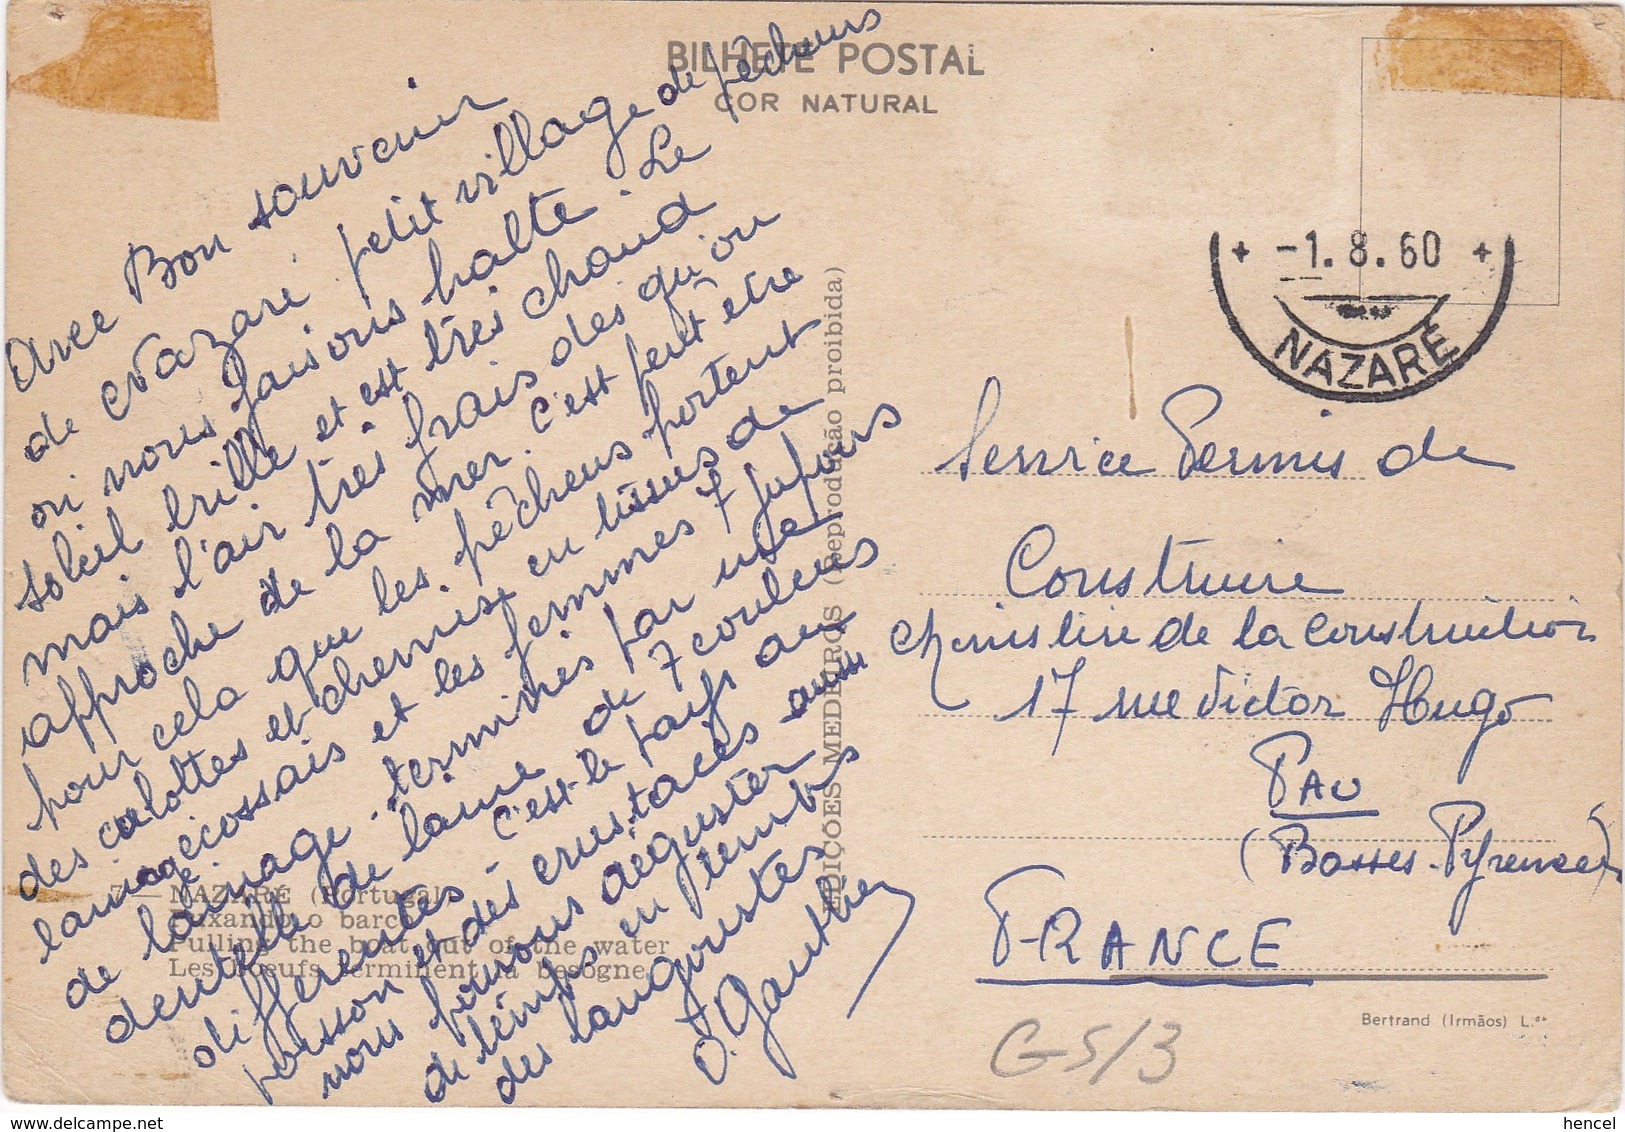 BILHETE POSTAL
COR NATURAL
Avec Bon souvenir
de Nazaré, petit village de pêcheurs
où nous faisons halte. Le
soleil brille et est très chaud
mais l'air très frais dès qu'on
approche de la mer. C'est peut être
pour cela que les pêcheurs portent
des culottes et chemises en tissus de
lainage écossais et les femmes 7 jupons
de lainage terminés par une
dentelle de laine de 7 couleurs
différentes - C'est le pays au
poisson et des crustacés aussi
nous pouvons déguster
de temps en temps
des langoustes
O. Gauthier
7 — NAZARÉ (Portugal)
Puxando o barco
Pulling the boat out of the water
Les boeufs terminent la besogne
EDIÇÕES MEDEIROS (Reprodução proibida)
-1.8.60
NAZARÉ
Service Permis de
Construire
Ministère de la Construction
17 rue Victor Hugo
PAU
(Basses-Pyrénées)
FRANCE
Bertrand (Irmãos) L.da
GS/3
hencel